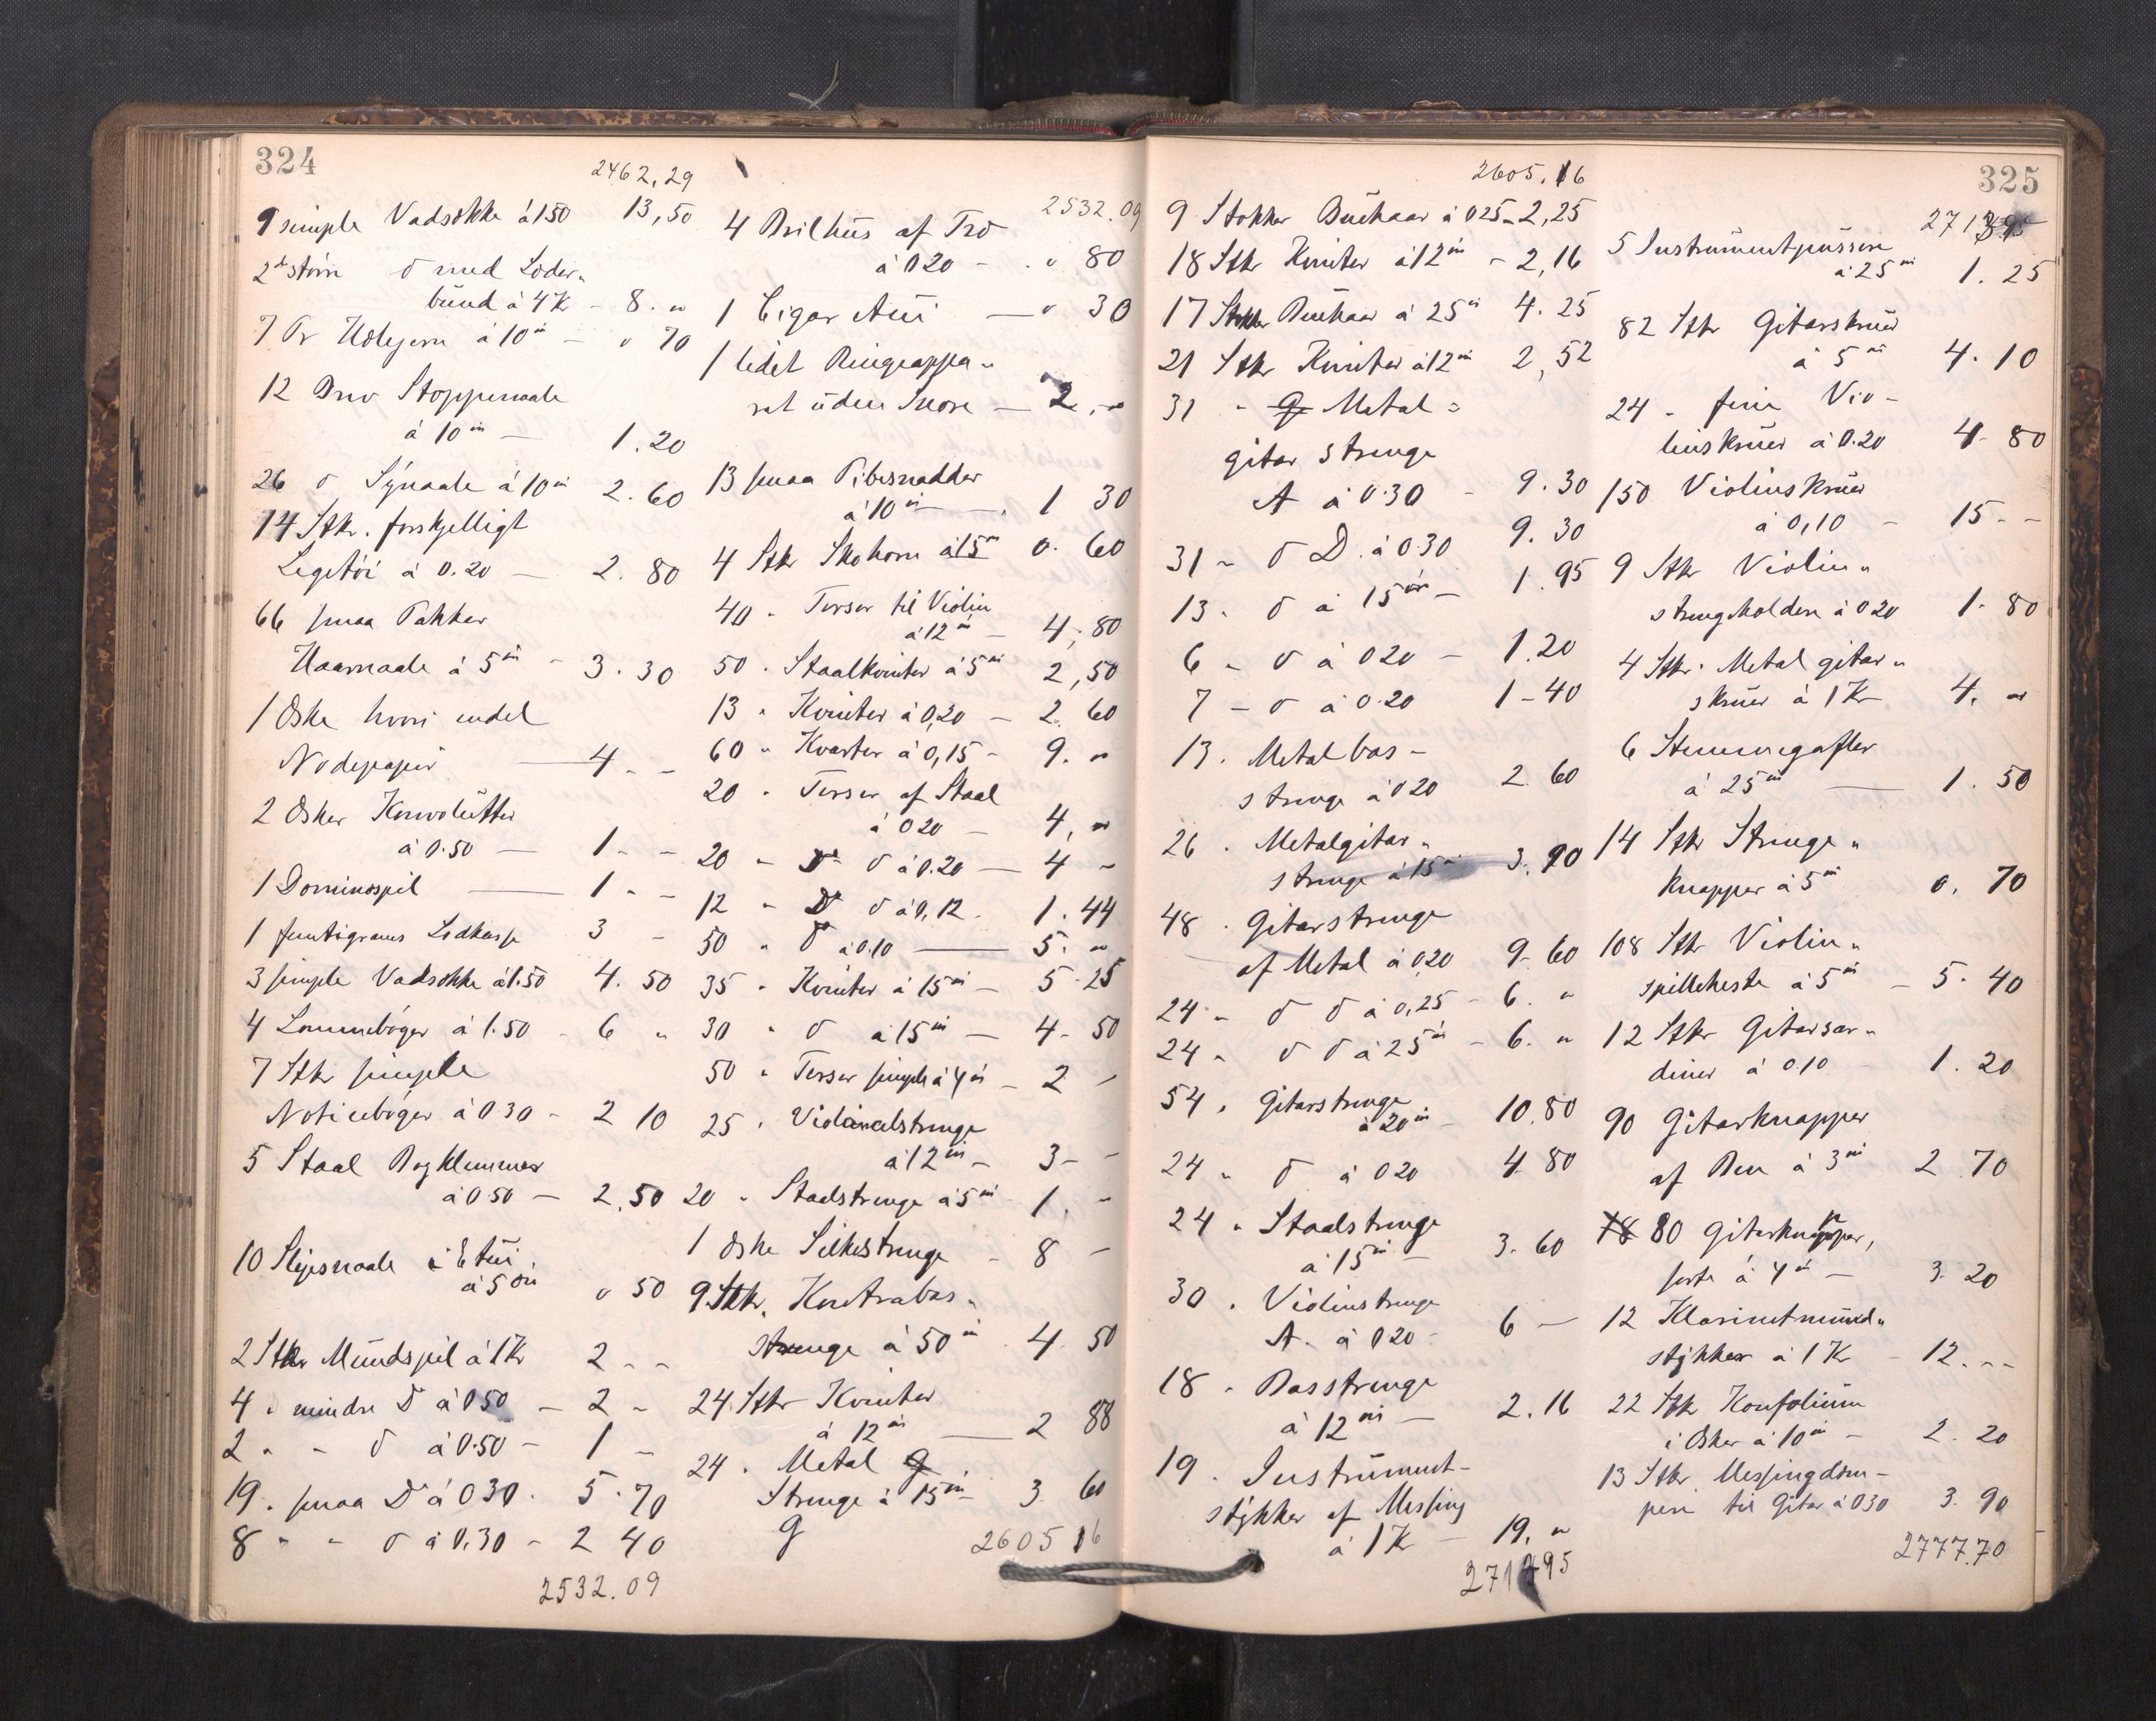 324
2462,29
9 simple Vadsække á 1.50 13,50
2 større d med Læder„
bund á 4 K - 8. „
7 Pr á 10 øre - „ 70
12 Brev Stoppenaale
á 10 øre - 1.20
26 d Synaale á 10 øre 2.60
14 Stk. forskjelligt
Legetøi á 0.20 - 2.80
66 smaa Pakker
Haarnaale á 5 øre - 3.30
1 Æske hvori endel
Nodepapir - 4 - -
2 Æsker Konvolutter
á 0.50 - 1 - -
1 Dominospil - 1 - -
1 Lodkasse 3 -
3 simple Vadsække á 1.50 4.50
4 Lommebøger á 1.50 - 6 „
7 Stk simple
Noticebøger á 0.30 - 2 10
5 Staal Bogklemmer
á 0.50 - 2.50
10 Slipsnaale i Etui
á 5 øre 0 50
2 Stkr Mundspil á 1 Kr 2 - -
4 „ mindre D á 0.50 - 2 -
2 „ „ d á 0.50 - 1 -
19 „ smaa D á 0.30 - 5.70
8 „ „ d á 0.30 - 2 40
2532.09
2532.09
4 Brilhus af Træ
á 0.20 - „ 80
1 Cigar Etui - „ 30
1 lidet Ringeappa„
rat uden Snore - 2,-
13 smaa Pibesnadder
á 10 øre - 1 30
4 Stk Skohorn á 15 øre 0.60
40 „ Terser til Violin
á 12 øre - 4,80
50 „ Staalkvinter á 5 øre 2,50
13 „ Kvinter á 0,20 - 2.60
60 „ Kvarter á 0,15 - 9. „
20 „ Terser af Staal
á 0.20 - 4, „
20 „ d á 0.20 - 4 -
12 „ D d á 0,12 - 1.44
50 „ d á 0.10 - 5. „
35 „ Kvinter á 15 øre - 5.25
30 „ d á 15 øre - 4-50
50 „ Terser simple á 4 øre - 2 -
25 „ Violincelstrenge
á 12 øre - 3 - -
20 „ Staalstrenge á 5 øre 1. -
1 Æske Silkestrenge - 8 -
9 Stkr. Kontrabas„
strenge á 50 øre 4 50
24 Stkr Kvinter
á 12 øre - 2 88
24 „ Metal G
Strenge á 15 øre - 3 60
G 2605 16
325
2605.16
9 Stokker Buehaar á 0.25 - 2,25
18 Stkr Kvinter á 12 øre - 2,16
17 Stokker Buehaar á 25 øre 4.25
21 Stkr Kvinter á 12 øre 2,52
31 „ G Metal =
gitar strenge
A á 0.30 - 9.30
31 „ d D. á 0.30 9.30
13 „ d á 15 øre - 1.95
6 „ d á 0.20 - 1.20
7 - d á 0.20 1-40
13 „ Metalbas-
strenge á 0.20 2.60
26 „ Metalgitar„
strenge á 15 øre 3.90
48 „ Gitarstrenge
af Metal á 0.20 9-60
24 „ d d á 0,25 - 6. „
24 „ d d á 25 øre - 6. „
54 „ Gitarstrenge
á 20 øre - 10.80
24 „ d á 0.20 4.80
24 „ Staalstrenge
á 15 øre - 3.60
30 „ Violinstrenge
A. á 0.20 - 6 -
18 „ Basstrenge
á 12 øre - 2.16
19 „ Instrument-
stykker af Messing
á 1 K - 19. „
271 95
271 95
5 Instrumentpussere
á 25 øre 1.25
82 Stkr Gitarskruer
á 5 øre 4.10
24 „ fine Vio-
linskruer á 0.20 4-80
150 Violinskruer
á 0,10 - 15 - -
9 Stkr Violin„
strengholdere á 0.20 1-80
4 Stkr. Metal gitar„
skruer á 1 Kr 4. „
6 Stemmegafler
á 25 øre - 1.50
14 Stkr Strenge„
Knapper á 5 øre 0.70
108 Stkr Violin„
spilleheste á 5 øre - 5.40
12 Stkr Gitarsor„
diner á 0.10 - 1.20
90 Gitarknapper
af Ben á 3 øre 2.70
78 80 Gitarknapper,
sorte á 4 øre - 3.20
12 Klarinetmund„
stykker á 1 K - 12. - -
22 Stk Konfolium
i Æsker á 10 øre - 2.20
13 Stkr. Messingdæm-
pere til Gitar á 0.30 3.90
2777.70